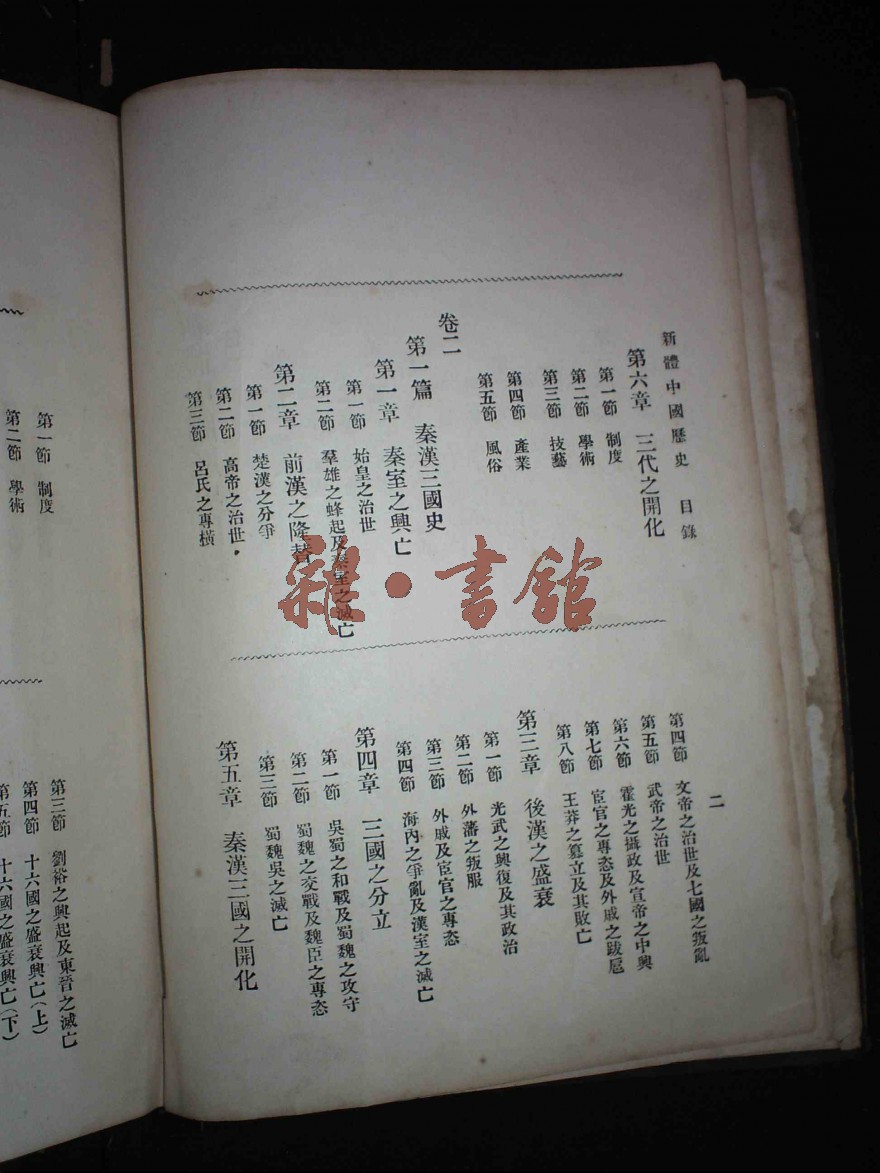 新體中國歷史 目錄
第六章 三代之開化
第一節 制度
第二節 學術
第三節 技藝
第四節 產業
第五節 風俗
卷二
第一篇 秦漢三國史
第一章 秦室之興亡
第一節 始皇之治世
第二節 羣雄之蜂起及秦室之滅亡
第二章 前漢之隆替
第一節 楚漢之分爭
第二節 高帝之治世
第三節 呂氏之專橫
二
第四節 文帝之治世及七國之叛亂
第五節 武帝之治世
第六節 霍光之攝政及宣帝之中興
第七節 宦官之專恣及外戚之跋扈
第八節 王莽之篡立及其敗亡
第三章 後漢之盛衰
第一節 光武之興復及其政治
第二節 外藩之叛服
第三節 外戚及宦官之專恣
第四節 海內之爭亂及漢室之滅亡
第四章 三國之分立
第一節 吳蜀之和戰及蜀魏之攻守
第二節 蜀魏之交戰及魏臣之專恣
第三節 蜀魏吳之滅亡
第五章 秦漢三國之開化
第一節 制度
第二節 學術
第三節 劉裕之興起及東晉之滅亡
第四節 十六國之盛衰興亡(上)
第五節 十六國之盛衰興亡(下)
雜·書館